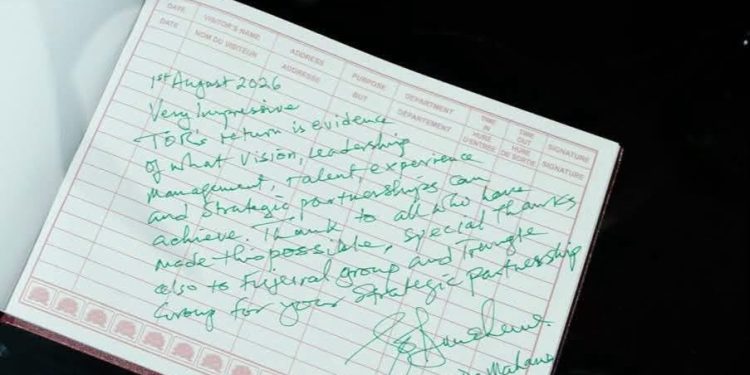 DATE VISITOR'S NAME ADDRESS PURPOSE DEPARTMENT TIME IN TIME OUT SIGNATURE
DATE NOM DU VISITEUR ADRESSE BUT DÉPARTEMENT HURE D'ENTREE HURE DE SORTIE SIGNATURE
1st August 2026
Very Impressive
TOR's return is evidence
of what Vision, Leadership
management, Talent, experience
and Strategic partnerships can
achieve. Thank to all who have
made this possible, special Thanks
also to Fujeiral group and Triangle
Group for your Strategic Partnership